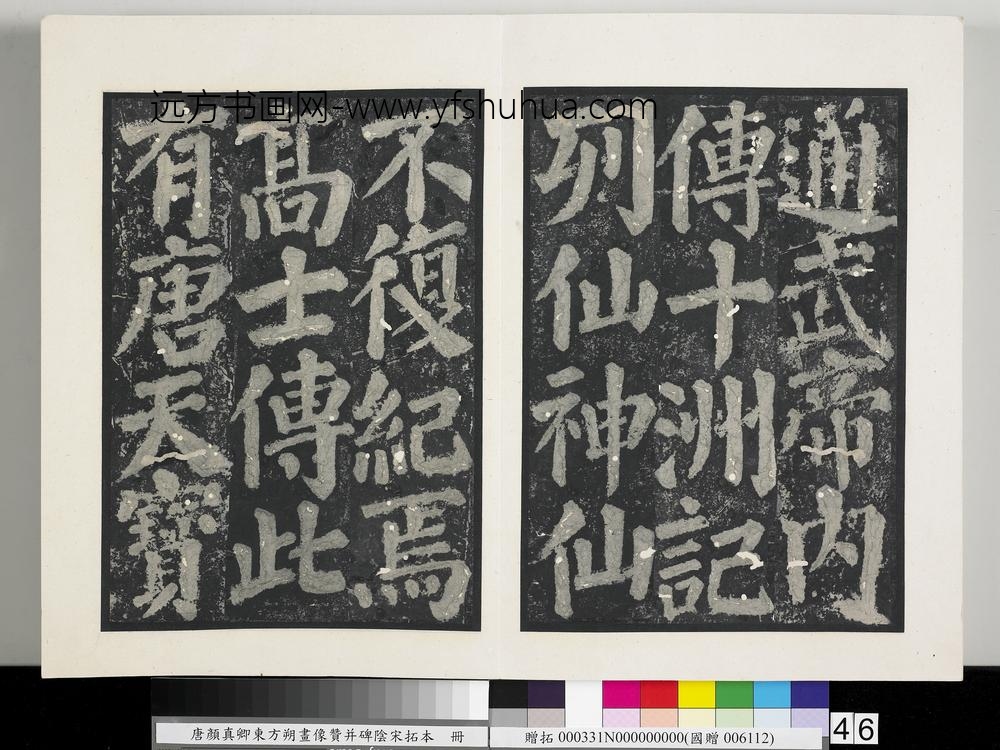 远方书画网-www.yfshuhua.com
通武帝内
傳十洲記
列仙神仙
不復紀焉
高士傳此
有唐天寳
唐顏真卿東方朔畫像贊并碑陰宋拓本 冊
贈拓 000331N000000000(國贈 006112)
46